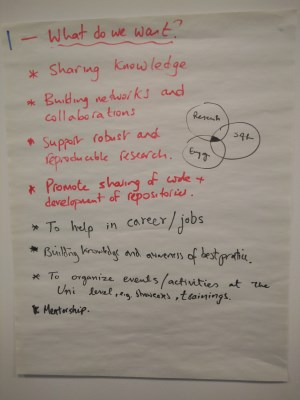 1 — What do we want?
* Sharing knowledge
* Building networks and
collaborations
* Support robust and
reproducible research.
Research
Eng.
* Promote sharing of code +
development of repositories.
* To help in career/jobs
* Building knowledge and awareness of best practice.
* To organize events/activities at the
Uni level, e.g. , trainings.
* Mentorship.